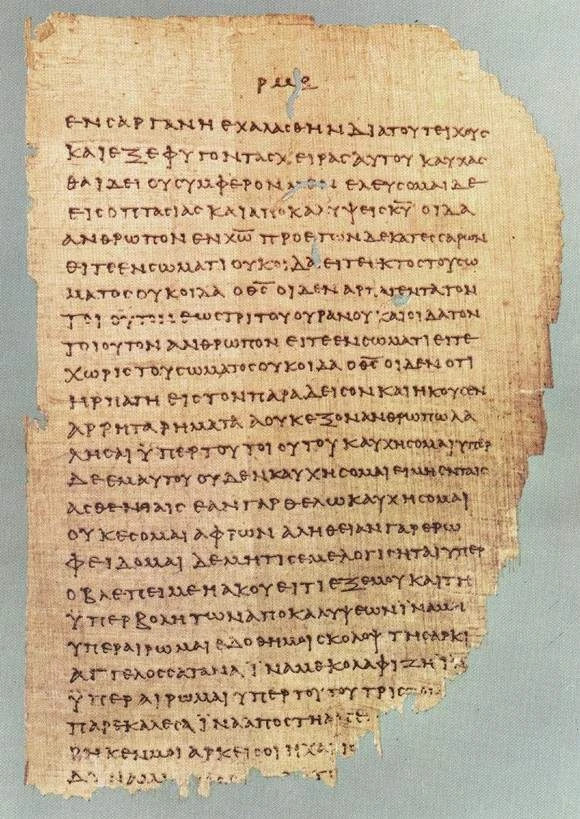 ρμε
ενσαργανηεχαλασθηνδιατουτειχους
καιεξεφυγοντασχειρασαυτουκαυχας
θαιδειουσυμφερονμενελευσομαιδε
εισοπτασιαςκαιαποκαλυψεισκ̅υ̅οιδα
ανθρωπονενχ̅ω̅προετωνδεκατεσσαρων
ειτεενσωματιουκοιδαειτεεκτοστουσω
ματοσουκοιδαοθ̅ς̅οιδεναρπαγεντατον
τοιουτονεωστριτουουρανουκαιοιδατον
τοιουτονανθρωπονειτεενσωματιειτε
χωριστουσωματοσουκοιδαοθ̅ς̅οιδενοτι
ηρπαγηειστονπαραδεισονκαιηκουσεν
αρρηταρηματααουκεξονανθρωπωλα
λησαιϋπερτουτοιουτουκαυχησομαιυπερ
δεεμαυτουουδενκαυχησομαιειμηενταις
ασθενιαιςεανγαρθελωκαυχησομαι
ουκεσομαιαφρωναληθειανγαρερω
φειδομαιδεμητισεμελογισηταιυπερ
οβλεπειμεηακουειτιεξεμουκαιτη
ϋπερβολητωναποκαλυψεωνϊναμη
υπεραιρωμαιεδοθημοισκολοψτησαρκι
αγγελοσσαταναϊναμεκολαφιζηϊνα
ϋπεραιρωμαιυπερτουτουτρις
παρεκαλεσαϊνααποστηα
ρηκενμοιαρκεισοιηχαρις